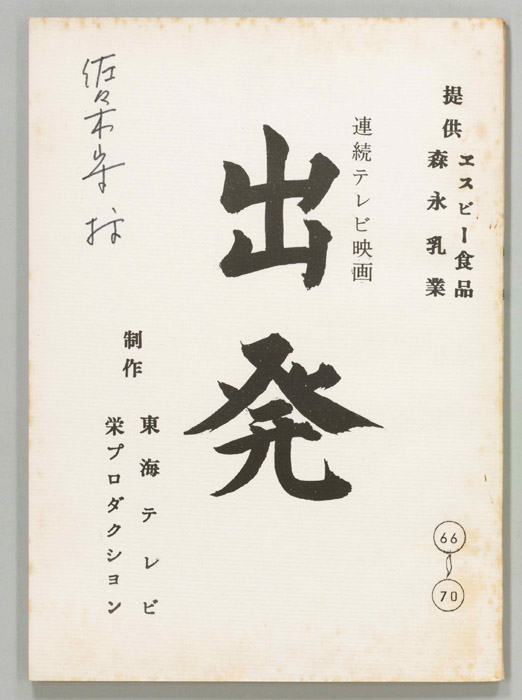 提供
エスビー食品
森永乳業
連続テレビ映画
出発
制作
東海テレビ
栄プロダクション
佐々木守
66
70